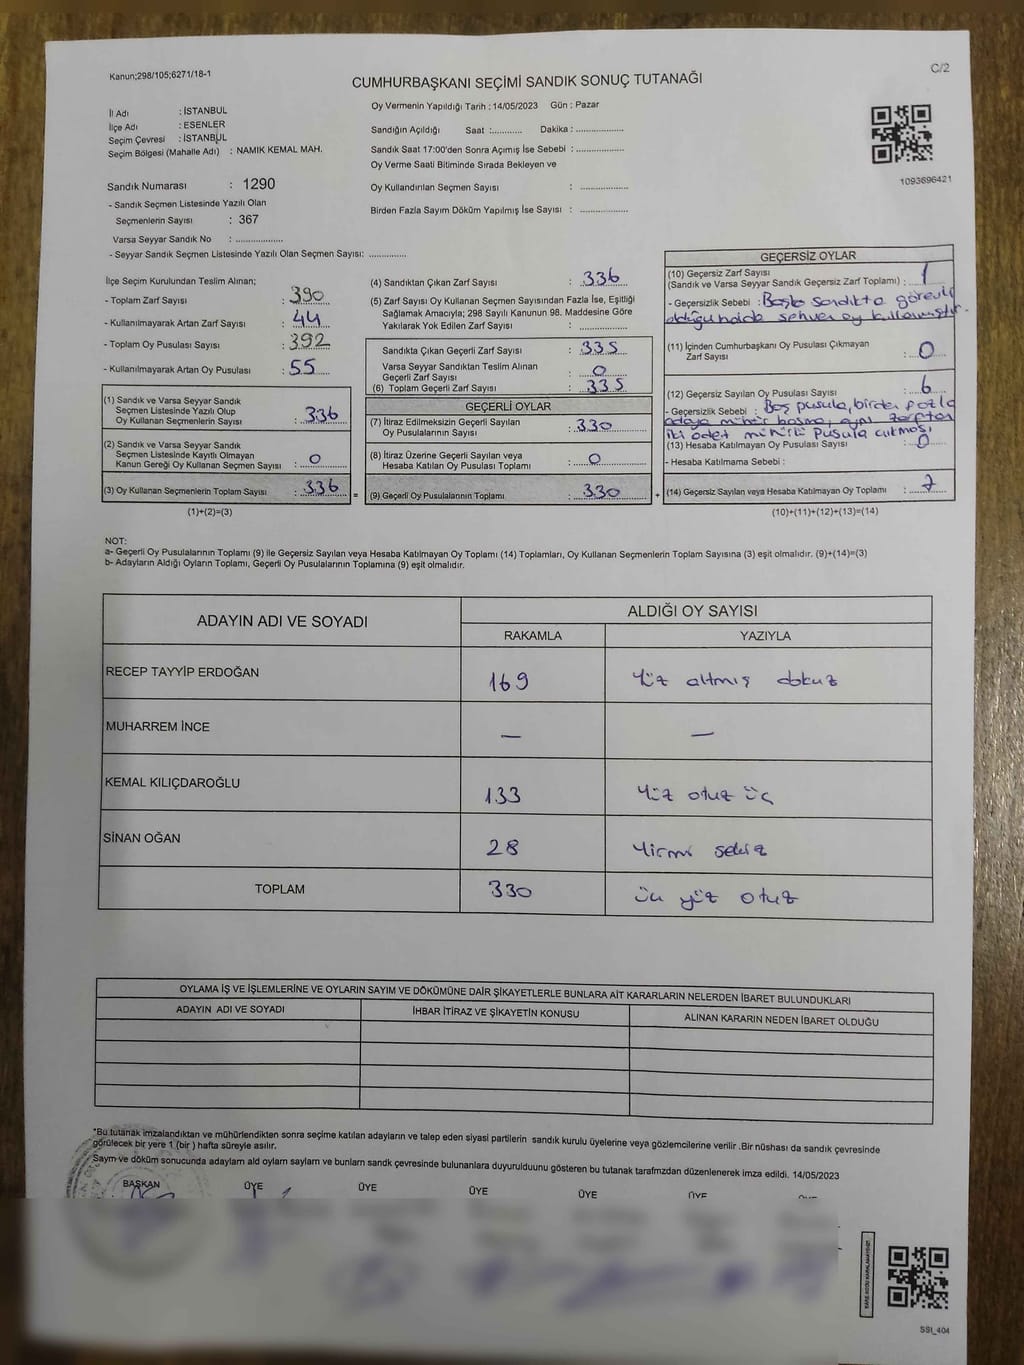 Kanun;298/105;6271/18-1
C/2
CUMHURBAŞKANI SEÇİMİ SANDIK SONUÇ TUTANAĞI
İl Adı : İSTANBUL
İlçe Adı : ESENLER
Seçim Çevresi : İSTANBUL
Seçim Bölgesi (Mahalle Adı) : NAMIK KEMAL MAH.
Sandık Numarası : 1290
- Sandık Seçmen Listesinde Yazılı Olan
Seçmenlerin Sayısı : 367
Varsa Seyyar Sandık No : ...............
- Seyyar Sandık Seçmen Listesinde Yazılı Olan Seçmen Sayısı: ............
Oy Vermenin Yapıldığı Tarih : 14/05/2023 Gün : Pazar
Sandığın Açıldığı Saat :.......... Dakika : ...............
Sandık Saat 17:00'den Sonra Açımış İse Sebebi : ...............
Oy Verme Saati Bitiminde Sırada Bekleyen ve
Oy Kullandırılan Seçmen Sayısı : ...............
Birden Fazla Sayım Döküm Yapılmış İse Sayısı : ...............
1093696421
İlçe Seçim Kurulundan Teslim Alınan;
- Toplam Zarf Sayısı : 390
- Kullanılmayarak Artan Zarf Sayısı : 44
- Toplam Oy Pusulası Sayısı : 392
- Kullanılmayarak Artan Oy Pusulası : 55
(1) Sandık ve Varsa Seyyar Sandık
Seçmen Listesinde Yazılı Olup
Oy Kullanan Seçmenlerin Sayısı : 336
(2) Sandık ve Varsa Seyyar Sandık
Seçmen Listesinde Kayıtlı Olmayan
Kanun Gereği Oy Kullanan Seçmen Sayısı : 0
(3) Oy Kullanan Seçmenlerin Toplam Sayısı : 336
(1)+(2)=(3)
=
(4) Sandıktan Çıkan Zarf Sayısı : 336
(5) Zarf Sayısı Oy Kullanan Seçmen Sayısından Fazla İse, Eşitliği
Sağlamak Amacıyla; 298 Sayılı Kanunun 98. Maddesine Göre
Yakılarak Yok Edilen Zarf Sayısı : ...............
Sandıkta Çıkan Geçerli Zarf Sayısı : 335
Varsa Seyyar Sandıktan Teslim Alınan
Geçerli Zarf Sayısı : 0
(6) Toplam Geçerli Zarf Sayısı : 335
GEÇERLİ OYLAR
(7) İtiraz Edilmeksizin Geçerli Sayılan
Oy Pusulalarının Sayısı : 330
(8) İtiraz Üzerine Geçerli Sayılan veya
Hesaba Katılan Oy Pusulası Toplamı : 0
(9) Geçerli Oy Pusulalarının Toplamı : 330
+
GEÇERSİZ OYLAR
(10) Geçersiz Zarf Sayısı
(Sandık ve Varsa Seyyar Sandık Geçersiz Zarf Toplamı) : 1
- Geçersizlik Sebebi : Başka sandıkta görevli
olduğu halde sehven oy kullanmıştır.
(11) İçinden Cumhurbaşkanı Oy Pusulası Çıkmayan
Zarf Sayısı : 0
(12) Geçersiz Sayılan Oy Pusulası Sayısı : 6
- Geçersizlik Sebebi : Boş pusula, birden fazla
adaya mühür basma, aynı zarftan
iki adet mühürlü pusula çıkması
(13) Hesaba Katılmayan Oy Pusulası Sayısı : 0
- Hesaba Katılmama Sebebi :
(14) Geçersiz Sayılan veya Hesaba Katılmayan Oy Toplamı : 7
(10)+(11)+(12)+(13)=(14)
NOT:
a- Geçerli Oy Pusulalarının Toplamı (9) ile Geçersiz Sayılan veya Hesaba Katılmayan Oy Toplamı (14) Toplamları, Oy Kullanan Seçmenlerin Toplam Sayısına (3) eşit olmalıdır. (9)+(14)=(3)
b- Adayların Aldığı Oyların Toplamı, Geçerli Oy Pusulalarının Toplamına (9) eşit olmalıdır.
ADAYIN ADI VE SOYADI ALDIĞI OY SAYISI
RAKAMLA YAZIYLA
RECEP TAYYİP ERDOĞAN 169 Yüz altmış dokuz
MUHARREM İNCE — —
KEMAL KILIÇDAROĞLU 133 Yüz otuz üç
SİNAN OĞAN 28 Yirmi sekiz
TOPLAM 330 üç yüz otuz
OYLAMA İŞ VE İŞLEMLERİNE VE OYLARIN SAYIM VE DÖKÜMÜNE DAİR ŞİKAYETLERLE BUNLARA AİT KARARLARIN NELERDEN İBARET BULUNDUKLARI
ADAYIN ADI VE SOYADI İHBAR İTİRAZ VE ŞİKAYETİN KONUSU ALINAN KARARIN NEDEN İBARET OLDUĞU
*Bu tutanak imzalandıktan ve mühürlendikten sonra seçime katılan adayların ve talep eden siyasi partilerin sandık kurulu üyelerine veya gözlemcilerine verilir .Bir nüshası da sandık çevresinde
görülecek bir yere 1 (bir ) hafta süreyle asılır.
Sayım ve döküm sonucunda adaylarn ald oylarn saylarn ve bunların sandk çevresinde bulunanlara duyurulduunu gösteren bu tutanak tarafmzdan düzenlenerek imza edildi. 14/05/2023
BAŞKAN ÜYE ÜYE ÜYE ÜYE ÜYE
SSI_404